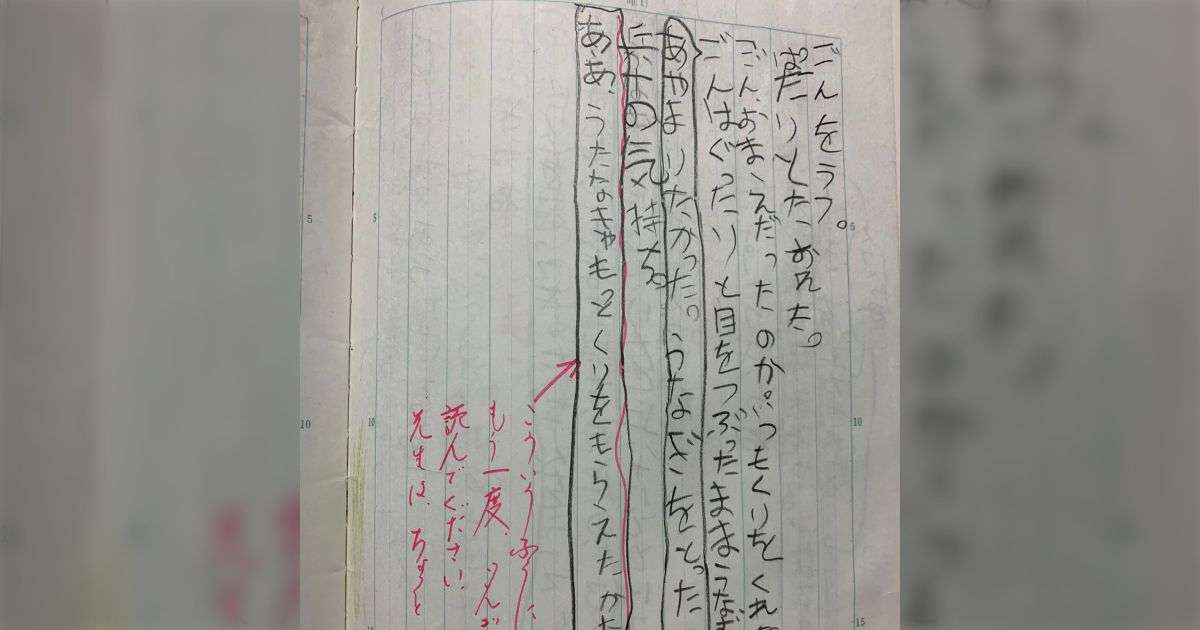 ごんをうつ。
ばたりとたおれた。
ごん、おまえだったのか。いつもくりをくれ
ごんはぐったりと目をつぶったままうなず
あやまりたかった。うなぎをとった
兵十の気持ち。
ああ、うたなきゃもっとくりをもらえたか
こういうふうに、
もう一度、ごんぎ
読んでください。
先生は、ちょっと
5
10
5
10
5
10
15